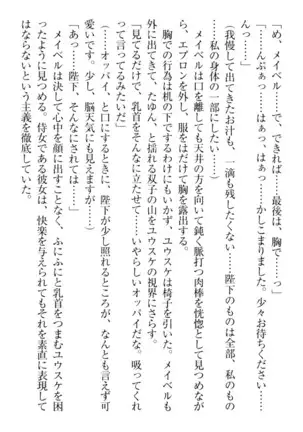 「め、メイベル、で、できれば……、最後は、胸で……っ」
「……んぷぁっ……はぁっ、はぁっ……かしこまりました。少々お待ちください……」
(我慢して出てきたお汁も、一滴も残したくない……陛下のものは全部、私のもの
私の身体の一部にしたい……)
メイベルは口を離しても天井の方を向いて鋭く脈打つ肉棒を恍惚として見つめなが
ら、エプロンを外し、服をはだけて胸を露出する。
胸での行為は机の下でするわけにもいかず、ユウスケは椅子を引いた。メイベルも
外に出てきて、たゆん、と揺れる双子の山をユウスケの視界にさらす。
「見てるだけで、乳首をそんなに立たせて……いやらしいオッパイだな。吸ってくれ
って言ってるみたいだ」
(……オッパイ、と口にするときに、陛下が少し照れるところが、なんとも言えず可
愛いです。少し、脳天気にも見えますが……)
「あっ……陛下、そんなになされては……」
メイベルは決して心中を顔に出すことなく、ふにふにと乳首をつまむユウスケを困
ったように見つめる。侍女である彼女は、快楽を与えられてもそれを素直に表現して
はならないという主義を徹底している。